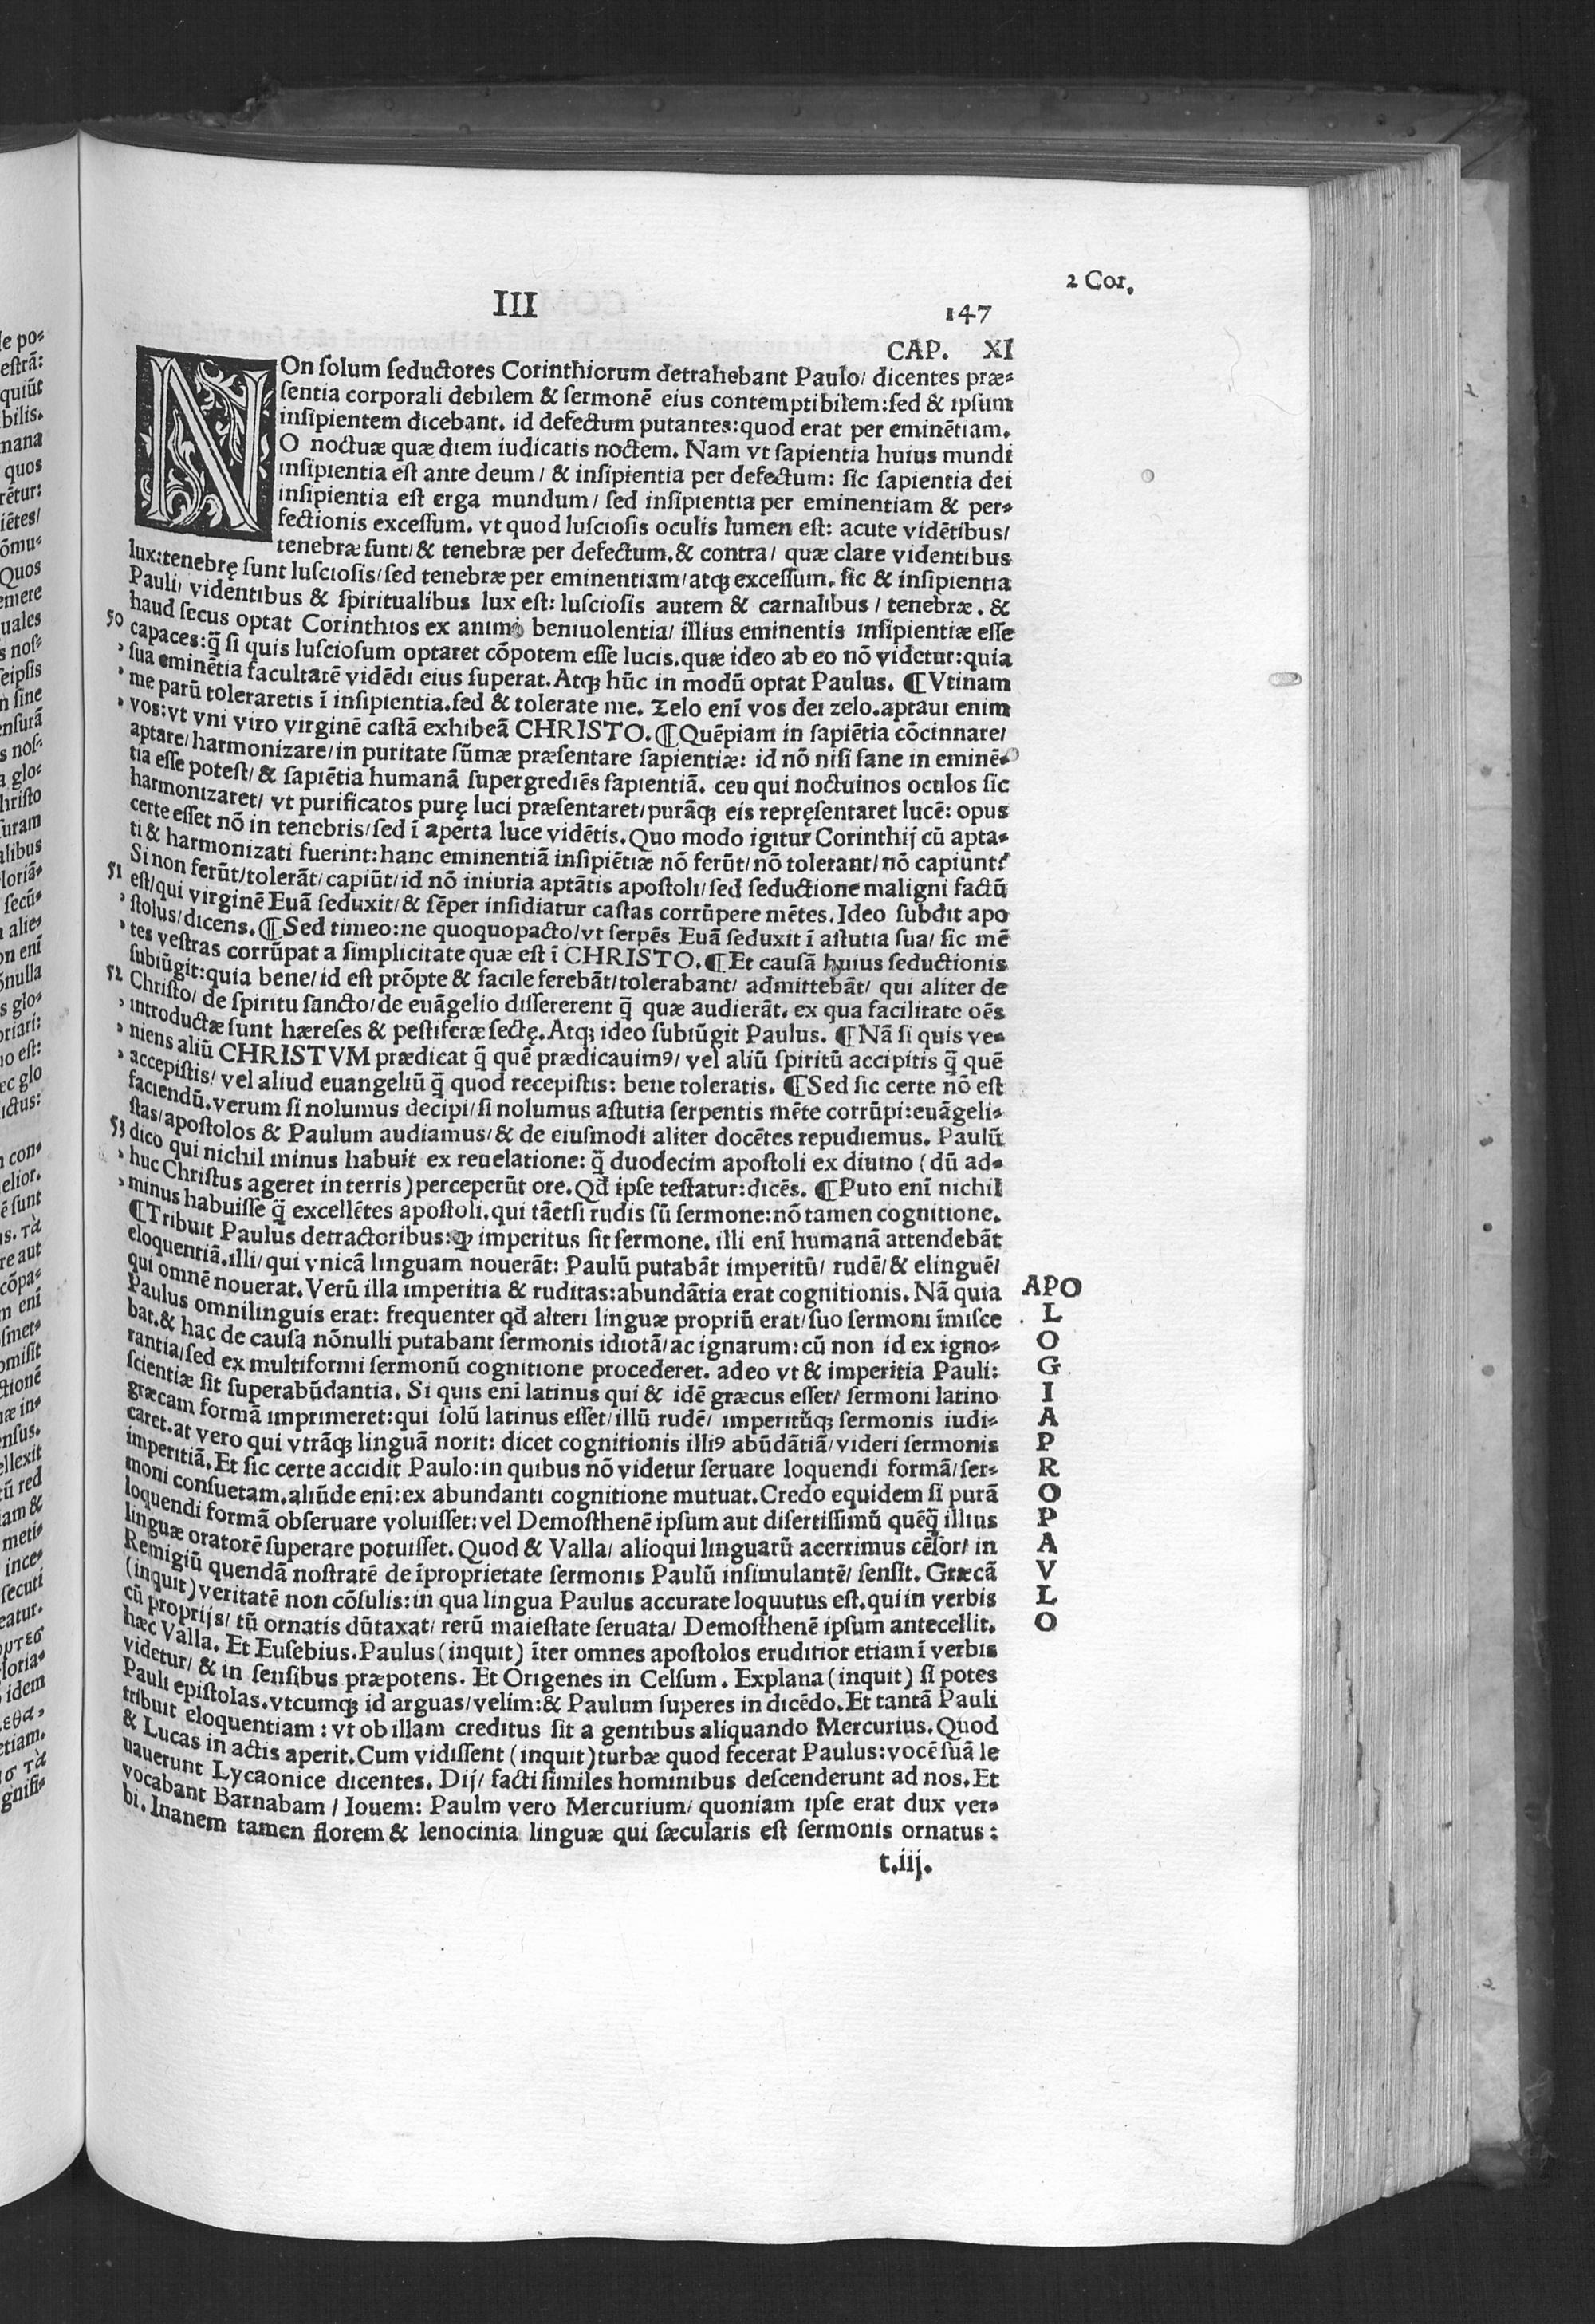 2 Cor.
III
147
CAP. XI
NOn ſolum ſeductores Corinthiorum detrahebant Paulo/ dicentes præ⸗
ſentia corporali debilem & ſermonē eius contemptibilem: ſed & ipſum
inſipientem dicebant. id defectum putantes: quod erat per eminētiam.
O noctuæ quæ diem iudicatis noctem. Nam vt ſapientia huius mundi
inſipientia eſt ante deum/ & inſipientia per defectum: ſic ſapientia dei
inſipientia eſt erga mundum/ ſed inſipientia per eminentiam & per⸗
fectionis exceſſum. vt quod luſcioſis oculis lumen eſt: acute vidētibus/
tenebræ ſunt/ & tenebræ per defectum. & contra/ quæ clare videntibus
lux: tenebrę ſunt luſcioſis/ ſed tenebræ per eminentiam/ atqꝫ exceſſum. ſic & inſipientia
Pauli/ videntibus & ſpiritualibus lux eſt: luſcioſis autem & carnalibus/ tenebræ. &
haud ſecus optat Corinthios ex animi beniuolentia/ illius eminentis inſipientiæ eſſe
50 capaces: q̄ ſi quis luſcioſum optaret cōpotem eſſe lucis. quæ ideo ab eo nō videtur: quia
, ſua eminētia facultatē vidēdi eius ſuperat. Atqꝫ hūc in modū optat Paulus. ¶ Vtinam
, me parū toleraretis ī inſipientia. ſed & tolerate me. Zelo enī vos dei zelo. aptaui enim
, vos: vt vni viro virginē caſtā exhibeā CHRISTO. ¶ Quēpiam in ſapiētia cōcinnare/
aptare/ harmonizare/ in puritate ſūmæ præſentare ſapientiæ: id nō niſi ſane in eminē⸗
tia eſſe poteſt/ & ſapiētia humanā ſupergrediēs ſapientiā. ceu qui noctuinos oculos ſic
harmonizaret/ vt purificatos purę luci præſentaret/ purāqꝫ eis repręſentaret lucē: opus
certe eſſet nō in tenebris/ ſed ī aperta luce vidētis. Quo modo igitur Corinthij cū apta⸗
ti & harmonizati fuerint: hanc eminentiā inſipiētiæ nō ferūt/ nō tolerant/ nō capiunt?
Si non ferūt/ tolerāt/ capiūt/ id nō iniuria aptātis apoſtoli/ ſed ſeductione maligni factū
51 eſt/ qui virginē Euā ſeduxit/ & ſēper inſidiatur caſtas corrūpere mētes. Ideo ſubdit apo
, ſtolus/ dicens. ¶ Sed timeo: ne quoquopacto/ vt ſerpēs Euā ſeduxit ī aſtutia ſua/ ſic mē
, tes veſtras corrūpat a ſimplicitate quæ eſt ī CHRISTO. ¶ Et cauſā huius ſeductionis
ſubiūgit: quia bene/ id eſt prōpte & facile ferebāt/ tolerabant/ admittebāt/ qui aliter de
52 Chriſto/ de ſpiritu ſancto/ de euāgelio diſſererent q̄ quæ audierāt. ex qua facilitate oēs
, introductæ ſunt hæreſes & peſtiferæ ſectę. Atqꝫ ideo ſubiūgit Paulus. ¶ Nā ſi quis ve⸗
, niens aliū CHRISTVM prædicat q̄ quē prædicauimꝰ/ vel aliū ſpiritū accipitis q̄ quē
, accepiſtis/ vel aliud euangeliū q̄ quod recepiſtis: bene toleratis. ¶ Sed ſic certe nō eſt
faciendū. verum ſi nolumus decipi/ ſi nolumus aſtutia ſerpentis mēte corrūpi: euāgeli⸗
ſtas/ apoſtolos & Paulum audiamus/ & de eiuſmodi aliter docētes repudiemus. Paulū
53 dico qui nichil minus habuit ex reuelatione: q̄ duodecim apoſtoli ex diuino (dū ad⸗
, huc Chriſtus ageret in terris) perceperūt ore. Qd̄ ipſe teſtatur: dicēs. ¶ Puto enī nichil
, minus habuiſſe q̄ excellētes apoſtoli. qui tāetſi rudis ſū ſermone: nō tamen cognitione.
¶ Tribuit Paulus detractoribus: ꝙ imperitus ſit ſermone. illi enī humanā attendebāt
eloquentiā. illi/ qui vnicā linguam nouerāt: Paulū putabāt imperitū/ rudē/ & elinguē/
qui omnē nouerat. Verū illa imperitia & ruditas: abundātia erat cognitionis. Nā quia
Paulus omnilinguis erat: frequenter qd̄ alteri linguæ propriū erat/ ſuo ſermoni īmiſce
bat. & hac de cauſa nōnulli putabant ſermonis idiotā/ ac ignarum: cū non id ex igno⸗
rantia/ ſed ex multiformi ſermonū cognitione procederet. adeo vt & imperitia Pauli:
ſcientiæ ſit ſuperabūdantia. Si quis enī latinus qui & idē græcus eſſet/ ſermoni latino
græcam formā imprimeret: qui ſolū latinus eſſet/ illū rudē/ imperitūqꝫ ſermonis iudi⸗
caret. at vero qui vtrāqꝫ linguā norit: dicet cognitionis illiꝰ abūdātiā/ videri ſermonis
imperitiā. Et ſic certe accidit Paulo: in quibus nō videtur ſeruare loquendi formā/ ſer⸗
moni conſuetam. aliūde enī: ex abundanti cognitione mutuat. Credo equidem ſi purā
loquendi formā obſeruare voluiſſet: vel Demoſthenē ipſum aut diſertiſſimū quēq̄ illius
linguæ oratorē ſuperare potuiſſet. Quod & Valla/ alioqui linguarū acerrimus cēſor/ in
Remigiū quendā noſtratē de īproprietate ſermonis Paulū inſimulantē/ ſenſit. Græcā
(inquit) veritatē non cōſulis: in qua lingua Paulus accurate loquutus eſt. qui in verbis
cū proprijs/ tū ornatis dūtaxat/ rerū maieſtate ſeruata/ Demoſthenē ipſum antecellit.
hæc Valla. Et Euſebius. Paulus (inquit) īter omnes apoſtolos eruditior etiam ī verbis
videtur/ & in ſenſibus præpotens. Et Origenes in Celſum. Explana (inquit) ſi potes
Pauli epiſtolas. vtcumqꝫ id arguas/ velim: & Paulum ſuperes in dicēdo. Et tantā Pauli
tribuit eloquentiam: vt ob illam creditus ſit a gentibus aliquando Mercurius. Quod
& Lucas in actis aperit. Cum vidiſſent (inquit) turbæ quod fecerat Paulus: vocē ſuā le
uauerunt Lycaonice dicentes. Dij/ facti ſimiles hominibus deſcenderunt ad nos. Et
vocabant Barnabam/ Iouem: Paulm vero Mercurium/ quoniam ipſe erat dux ver⸗
bi. Inanem tamen florem & lenocinia linguæ qui ſæcularis eſt ſermonis ornatus:
t.iij.
APO
L
O
G
I
A
P
R
O
P
A
V
L
O